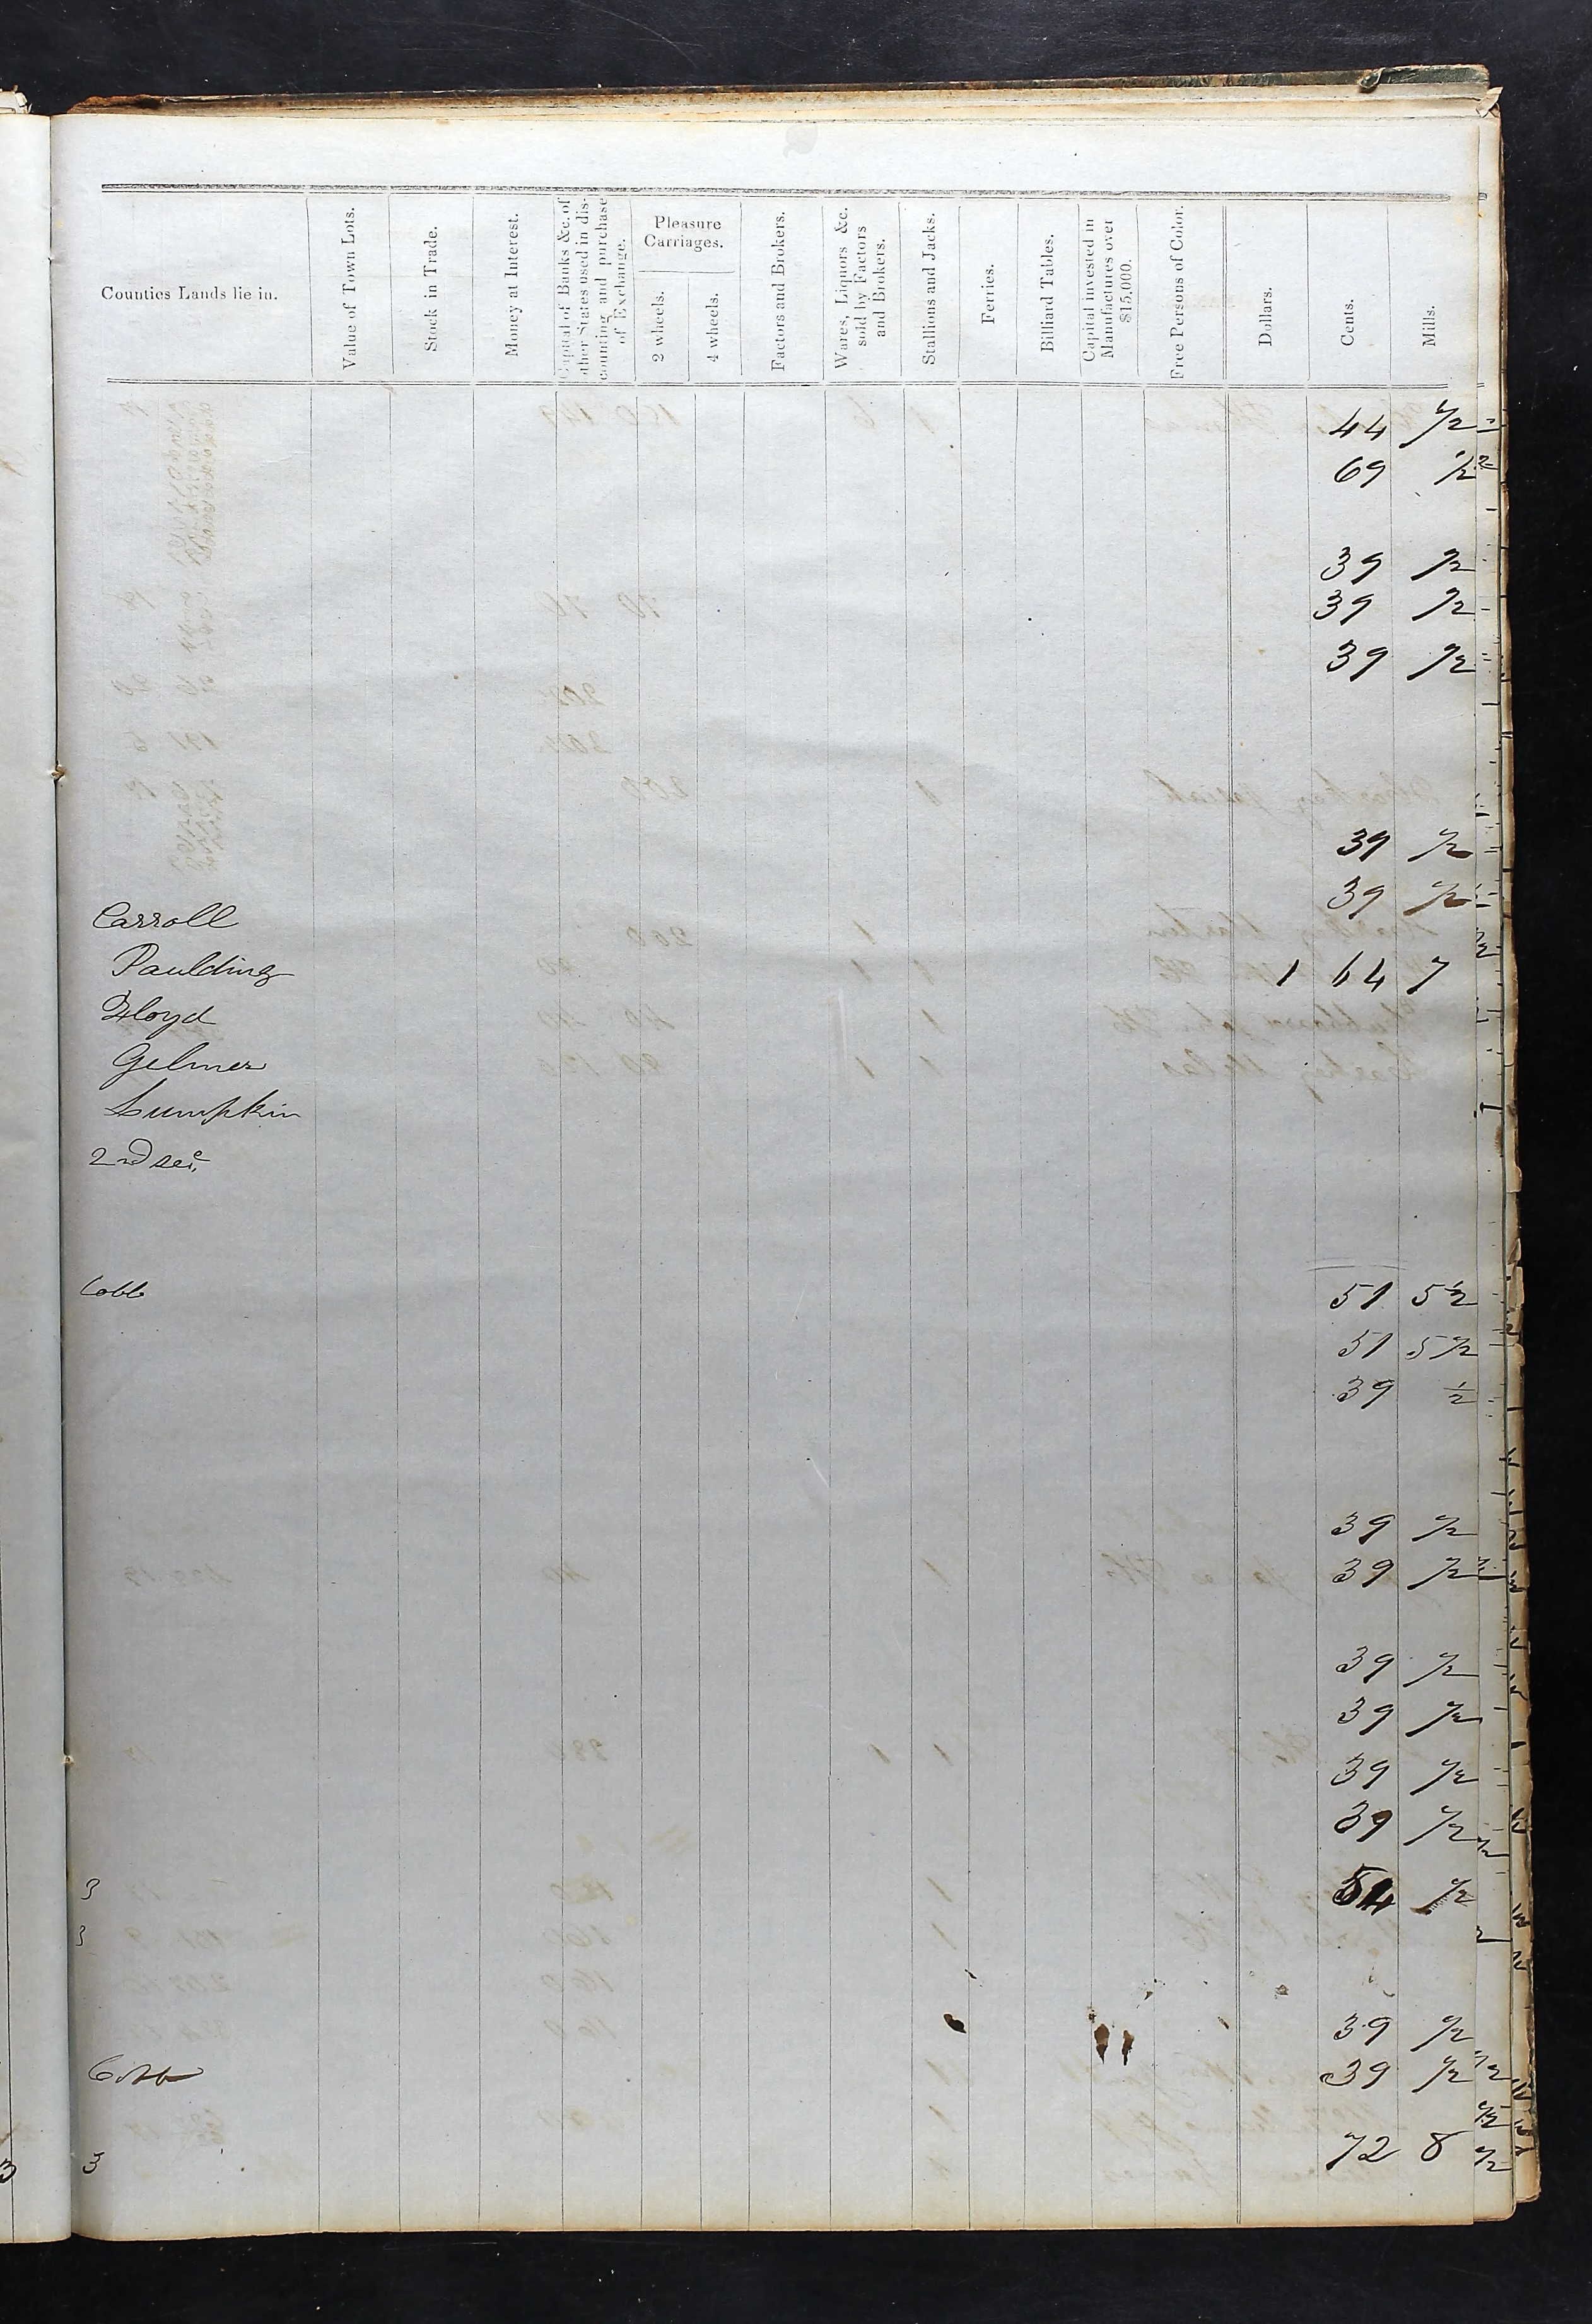 Counties Lands lie in.
Value of Town Lots.
Stock in Trade.
Money at Interest.
Capital of Banks &c. of
other States used in dis-
counting and purchase
of Exchange.
Pleasure
Carriages.
2 wheels.
4 wheels.
Factors and Brokers.
Wares, Liquors &c.
sold by Factors
and Brokers.
Stallions and Jacks.
Ferries.
Billiard Tables.
Capital invested in
Manufactures over
$15,000.
Free Persons of Color.
Dollars.
Cents.
Mills.
44 1/2
69 1/2
39 1/2
39 1/2
39 1/2
39 1/2
39 1/2
Carroll
Paulding 1 64 7
Floyd
Gilmer
Lumpkin
2nd sec
Cobb 51 5 1/2
51 5 1/2
39 1/2
39 1/2
39 1/2
39 1/2
39 1/2
39 1/2
39 1/2
3 54 1/2
3
39 1/2
Cobb 39 1/2
3 72 8